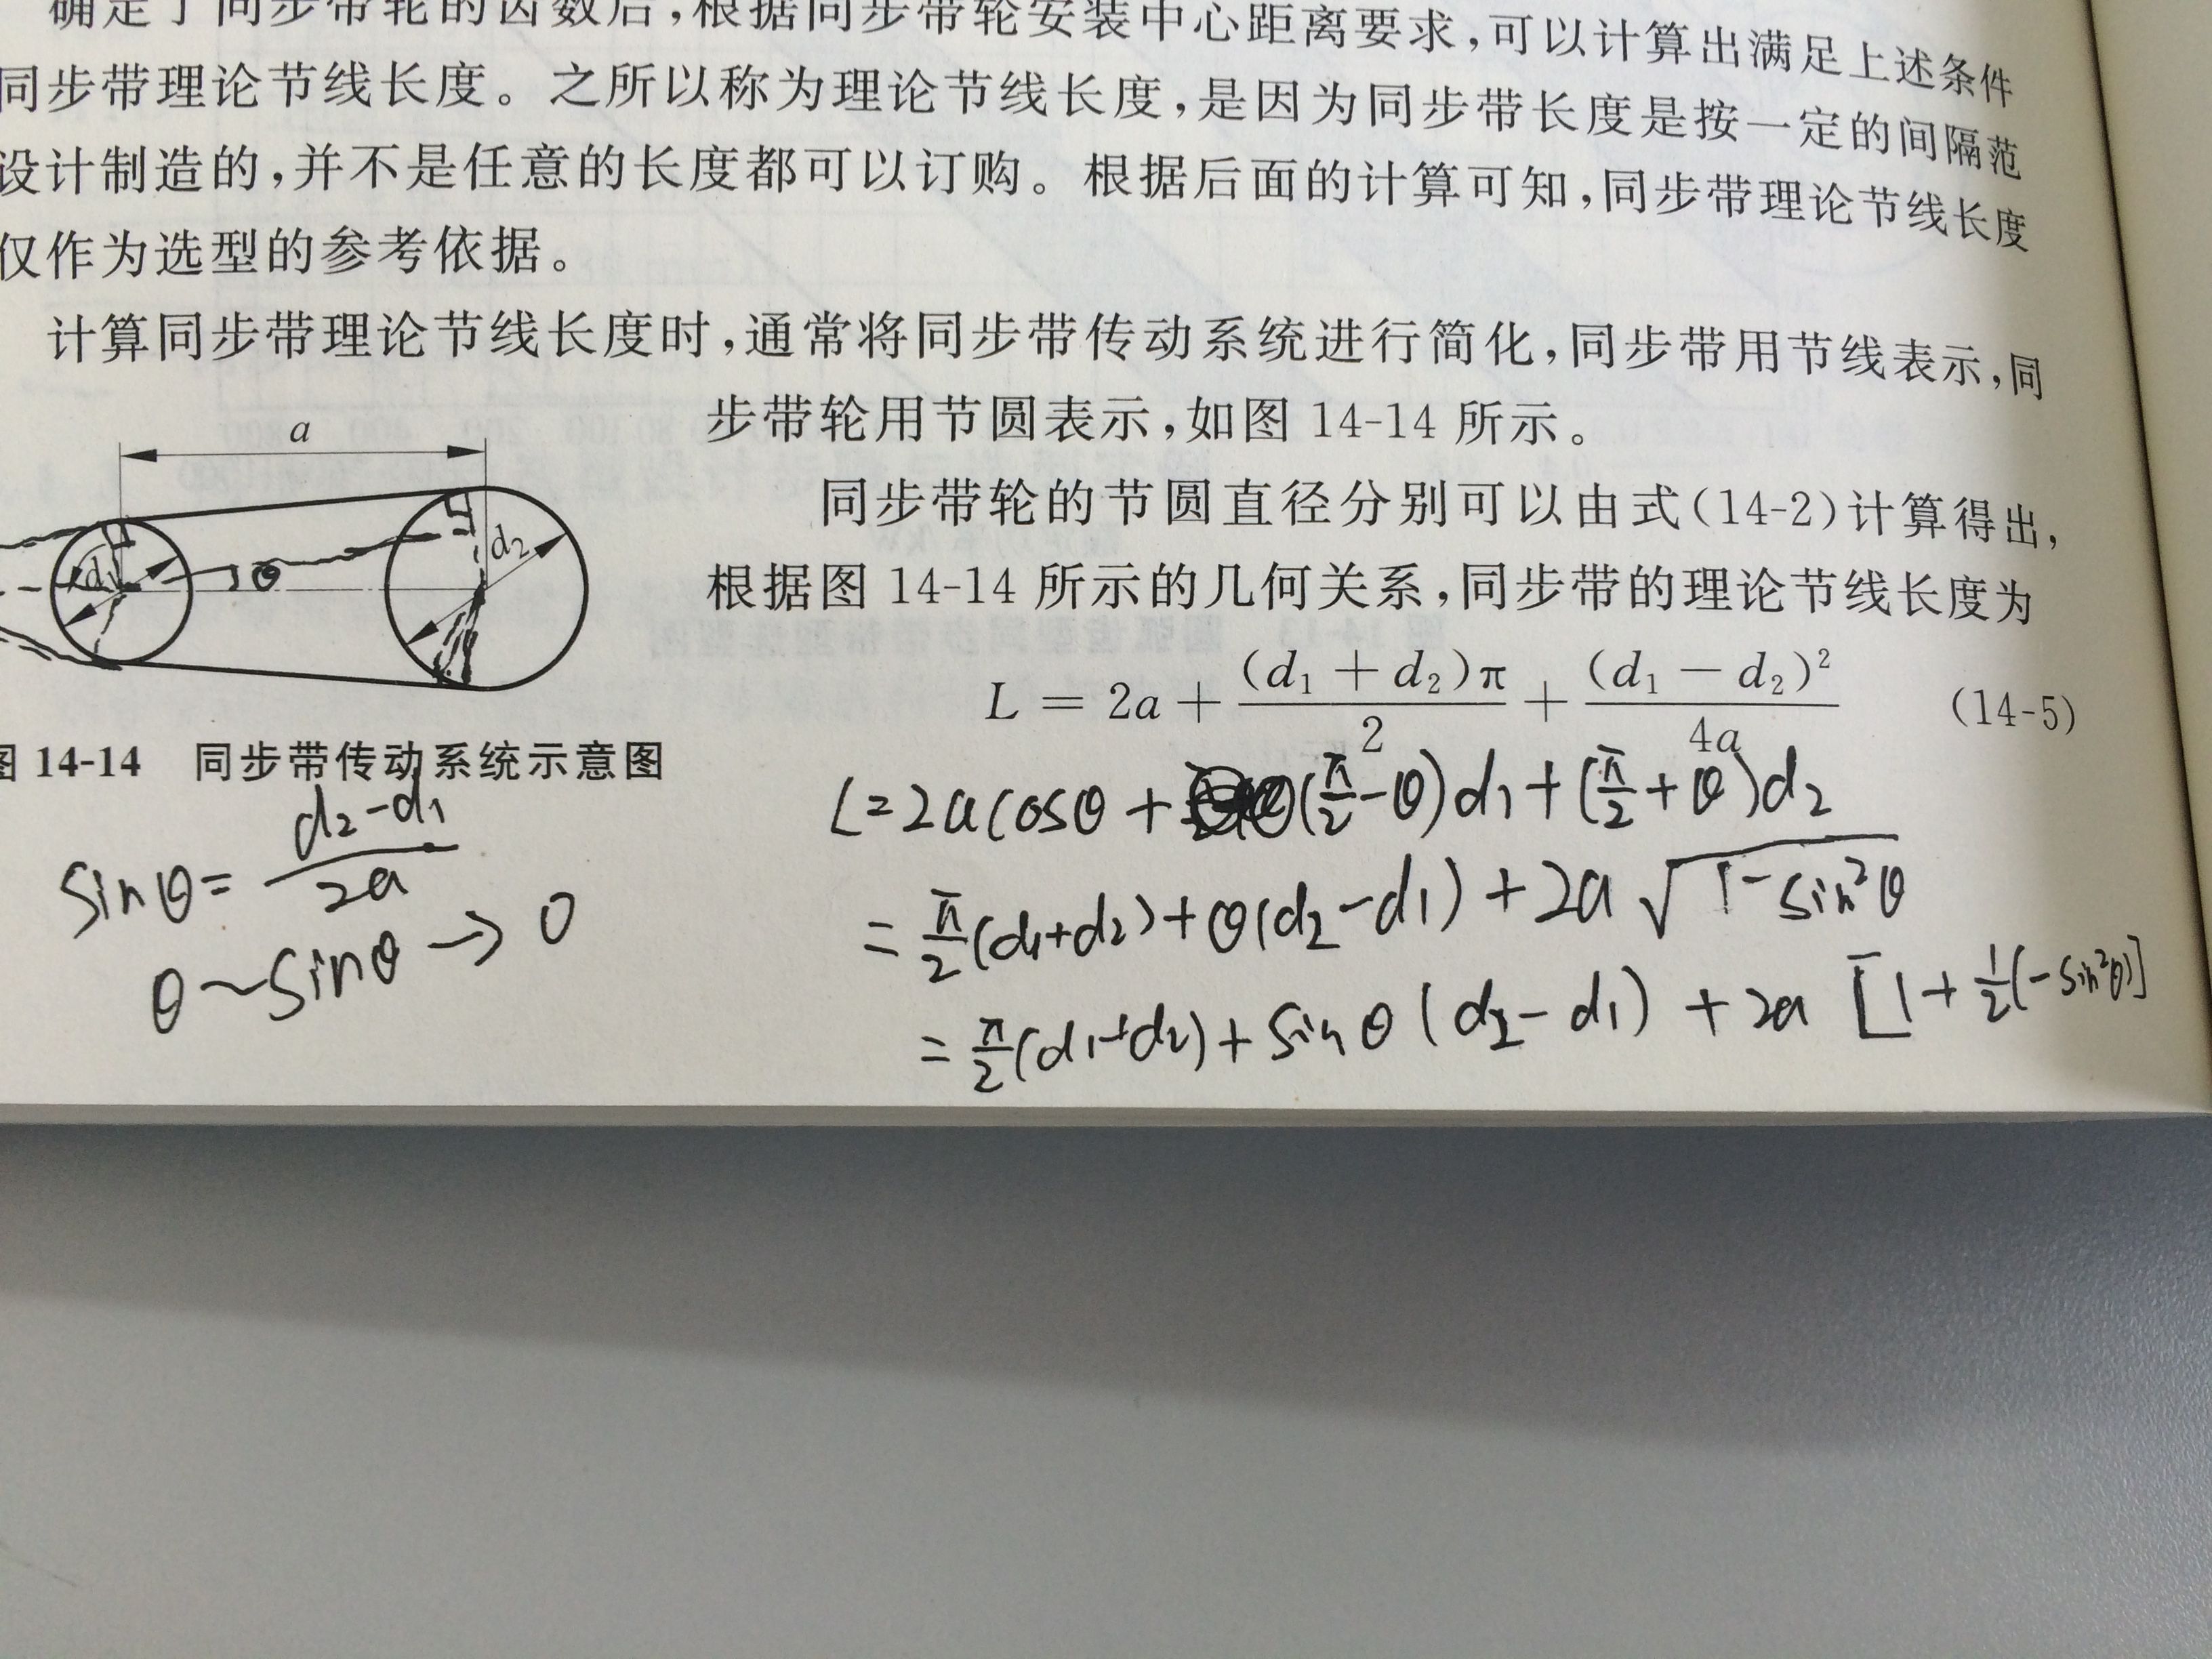 确定了同步带轮的齿数后,根据同步带轮安装中心距离要求,可以计算出满足上述条件
同步带理论节线长度。之所以称为理论节线长度,是因为同步带长度是按一定的间隔范
设计制造的,并不是任意的长度都可以订购。根据后面的计算可知,同步带理论节线长度
仅作为选型的参考依据。
计算同步带理论节线长度时,通常将同步带传动系统进行简化,同步带用节线表示,同
步带轮用节圆表示,如图 14-14 所示。
同步带轮的节圆直径分别可以由式(14-2)计算得出,
根据图 14-14 所示的几何关系,同步带的理论节线长度为
L = 2a + (d₁ + d₂)π/2 + (d₁ − d₂)²/4a (14-5)
a
d₁
θ
d₂
图 14-14 同步带传动系统示意图
sinθ = (d₂-d₁)/2a
θ ~ sinθ → 0
L = 2a cosθ + (π/2 - θ)d₁ + (π/2 + θ)d₂
= π/2 (d₁+d₂) + θ(d₂-d₁) + 2a √(1-sin²θ)
= π/2 (d₁+d₂) + sinθ (d₂-d₁) + 2a [1 + 1/2(-sin²θ)]